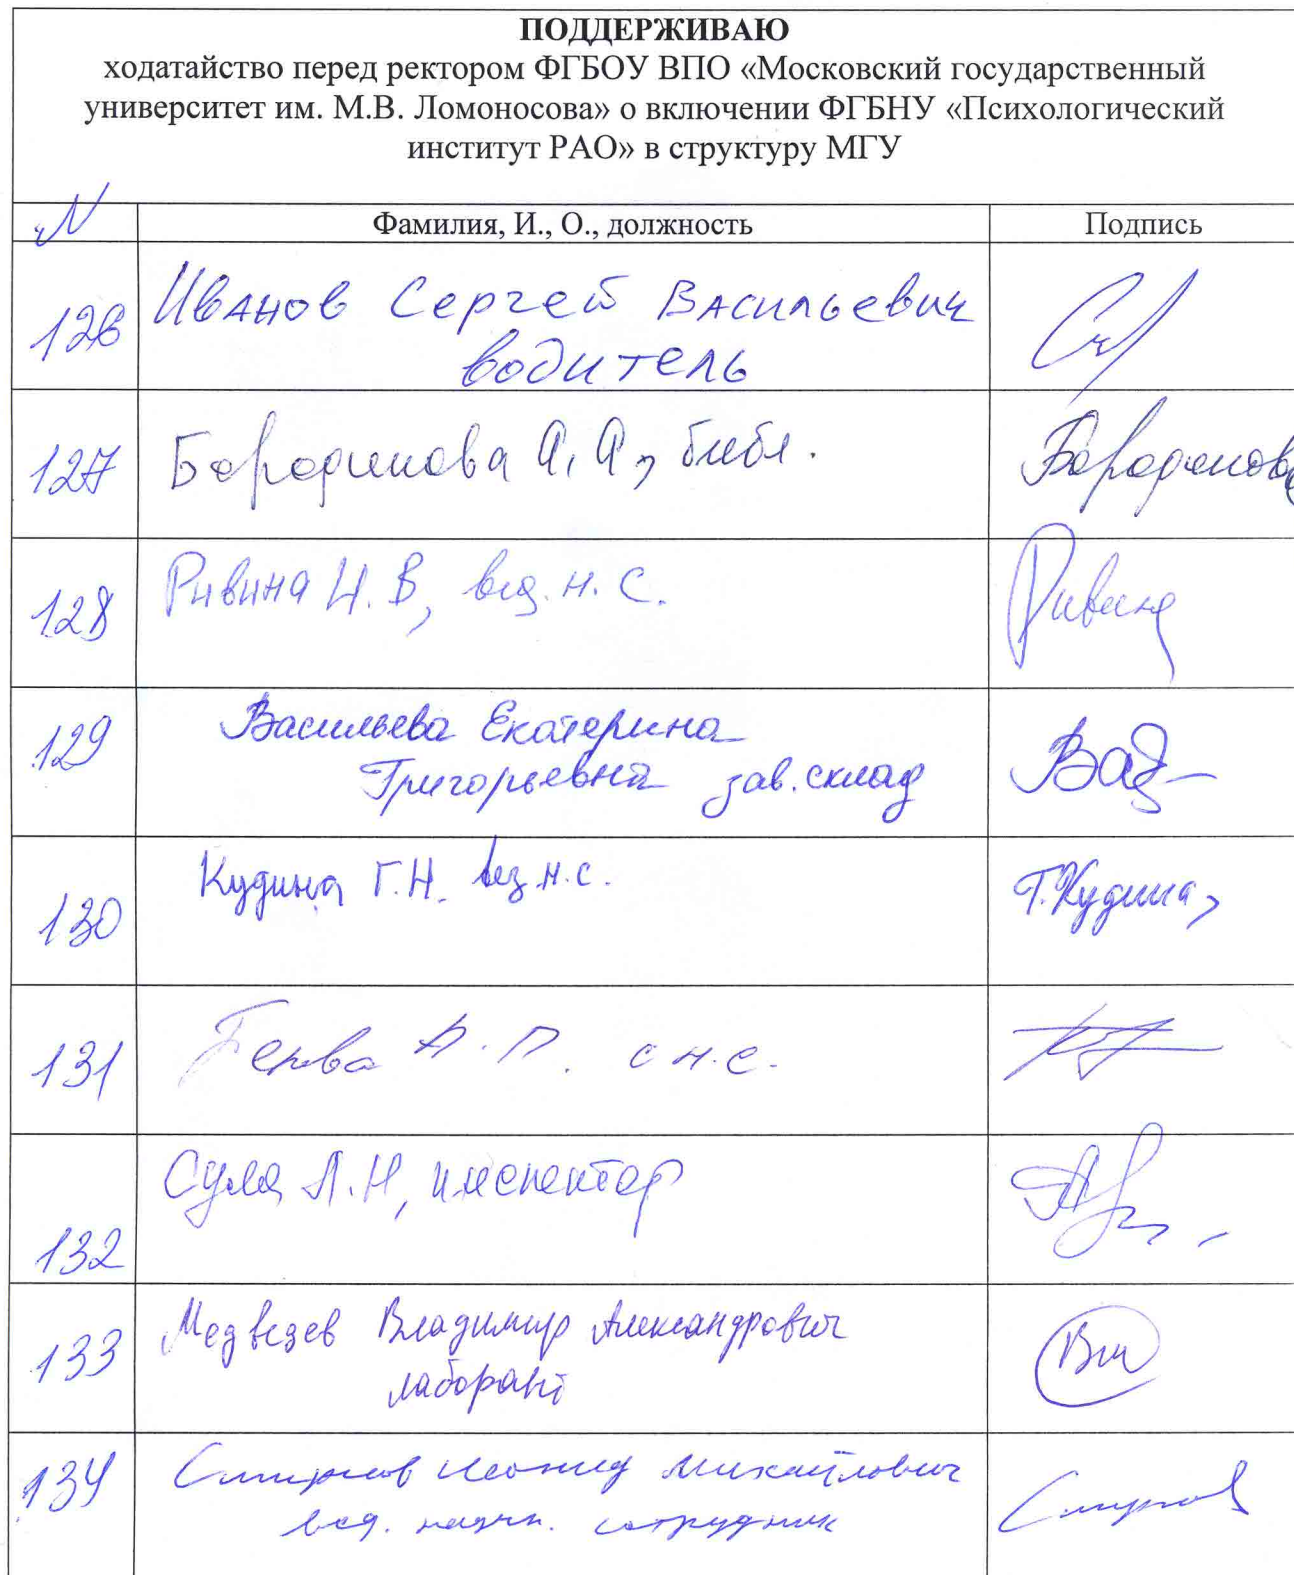 ПОДДЕРЖИВАЮ
ходатайство перед ректором ФГБОУ ВПО «Московский государственный
университет им. М.В. Ломоносова» о включении ФГБНУ «Психологический
институт РАО» в структуру МГУ
N Фамилия, И., О., должность Подпись
126 Иванов Сергей Васильевич
водитель
127 Бородинова А, А, библ. Бородинова
128 Ривина И. В, вед. н. с. Ривина
129 Васильева Екатерина
Григорьевна зав. склад
130 Кудина Г. Н. вед н. с. Г. Кудина
131 А. П. с н. с.
132 Сула Л. Н, инспектор
133 Медведев Владимир Александрович
лаборант
134 Смирнов Леонид Михайлович Смирнов
вед. научн. сотрудник